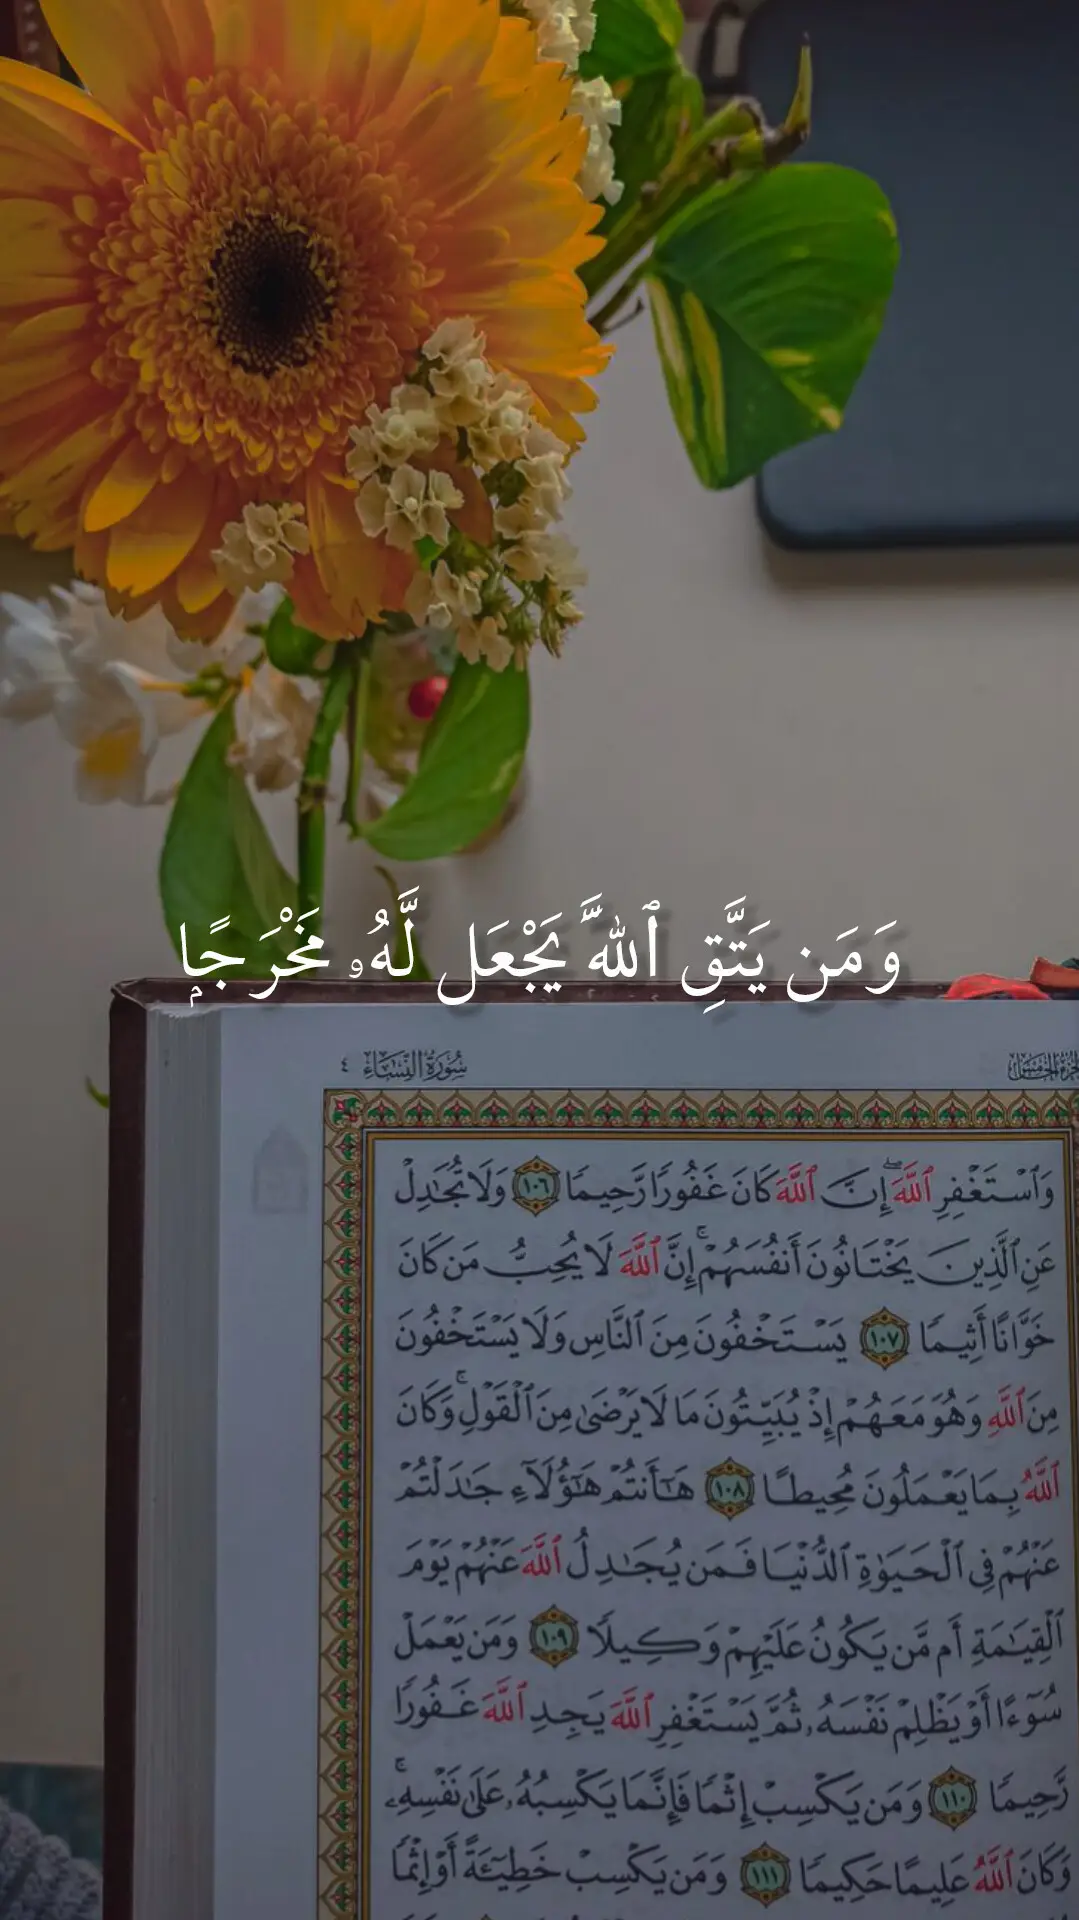 وَمَن يَتَّقِ ٱللَّهَ يَجْعَل لَّهُۥ مَخْرَجًۭا
سُورَةُ النِّسَاءِ ٤
وَٱسْتَغْفِرِ ٱللَّهَۖ إِنَّ ٱللَّهَ كَانَ غَفُورًا رَّحِيمًا ١٠٦ وَلَا تُجَٰدِلْ
عَنِ ٱلَّذِينَ يَخْتَانُونَ أَنفُسَهُمْۚ إِنَّ ٱللَّهَ لَا يُحِبُّ مَن كَانَ
خَوَّانًا أَثِيمًا ١٠٧ يَسْتَخْفُونَ مِنَ ٱلنَّاسِ وَلَا يَسْتَخْفُونَ
مِنَ ٱللَّهِ وَهُوَ مَعَهُمْ إِذْ يُبَيِّتُونَ مَا لَا يَرْضَىٰ مِنَ ٱلْقَوْلِۚ وَكَانَ
ٱللَّهُ بِمَا يَعْمَلُونَ مُحِيطًا ١٠٨ هَٰٓأَنتُمْ هَٰٓؤُلَآءِ جَٰدَلْتُمْ
عَنْهُمْ فِى ٱلْحَيَوٰةِ ٱلدُّنْيَا فَمَن يُجَٰدِلُ ٱللَّهَ عَنْهُمْ يَوْمَ
ٱلْقِيَٰمَةِ أَم مَّن يَكُونُ عَلَيْهِمْ وَكِيلًا ١٠٩ وَمَن يَعْمَلْ
سُوٓءًا أَوْ يَظْلِمْ نَفْسَهُۥ ثُمَّ يَسْتَغْفِرِ ٱللَّهَ يَجِدِ ٱللَّهَ غَفُورًا
رَّحِيمًا ١١٠ وَمَن يَكْسِبْ إِثْمًا فَإِنَّمَا يَكْسِبُهُۥ عَلَىٰ نَفْسِهِۦۚ
وَكَانَ ٱللَّهُ عَلِيمًا حَكِيمًا ١١١ وَمَن يَكْسِبْ خَطِيٓـَٔةً أَوْ إِثْمًا